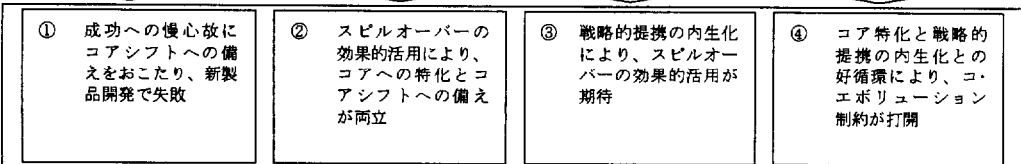 ① 成功への慢心故に
コアシフトへの備
えをおこたり、新製
品開発で失敗
② スピルオーバーの
効果的活用により、
コアへの特化とコ
アシフトへの備え
が両立
③ 戦略的提携の内生化
により、スピルオー
バーの効果的活用が
期待
④ コア特化と戦略的
提携の内生化との
好循環により、コ・
エボリューション
制約が打開